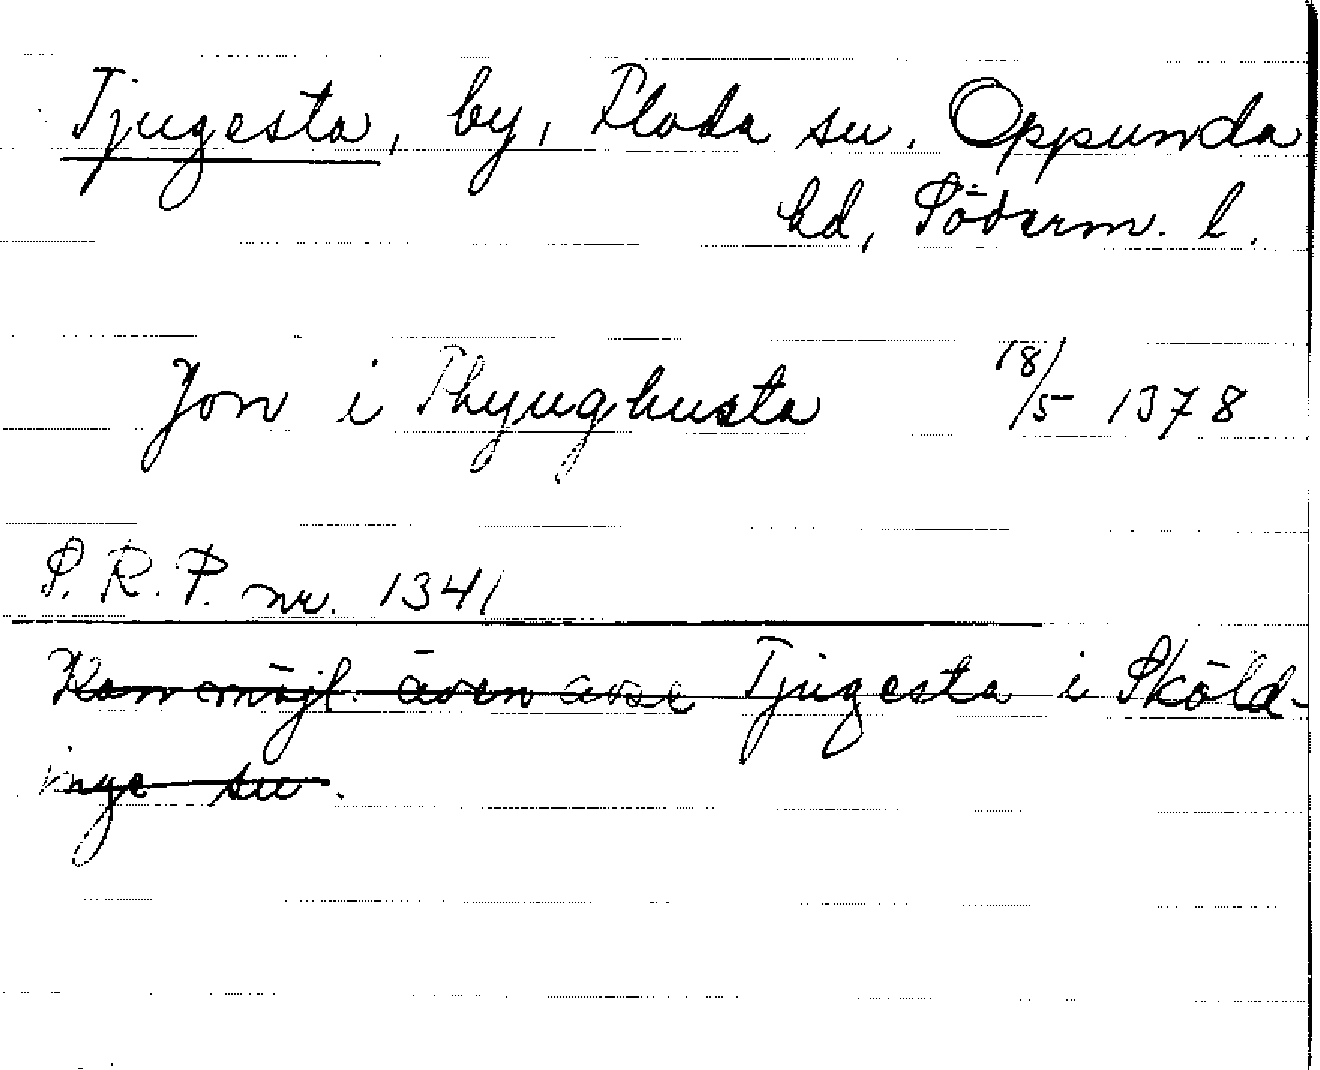 Tjugesta, by, Floda sn. Oppunda
hd, Söderm. l.
Jon i Thyughusta 18/5 1378
S. R. P. nr. 1341
Kan möjl. även avse Tjugesta i Sköld-
inge sn.